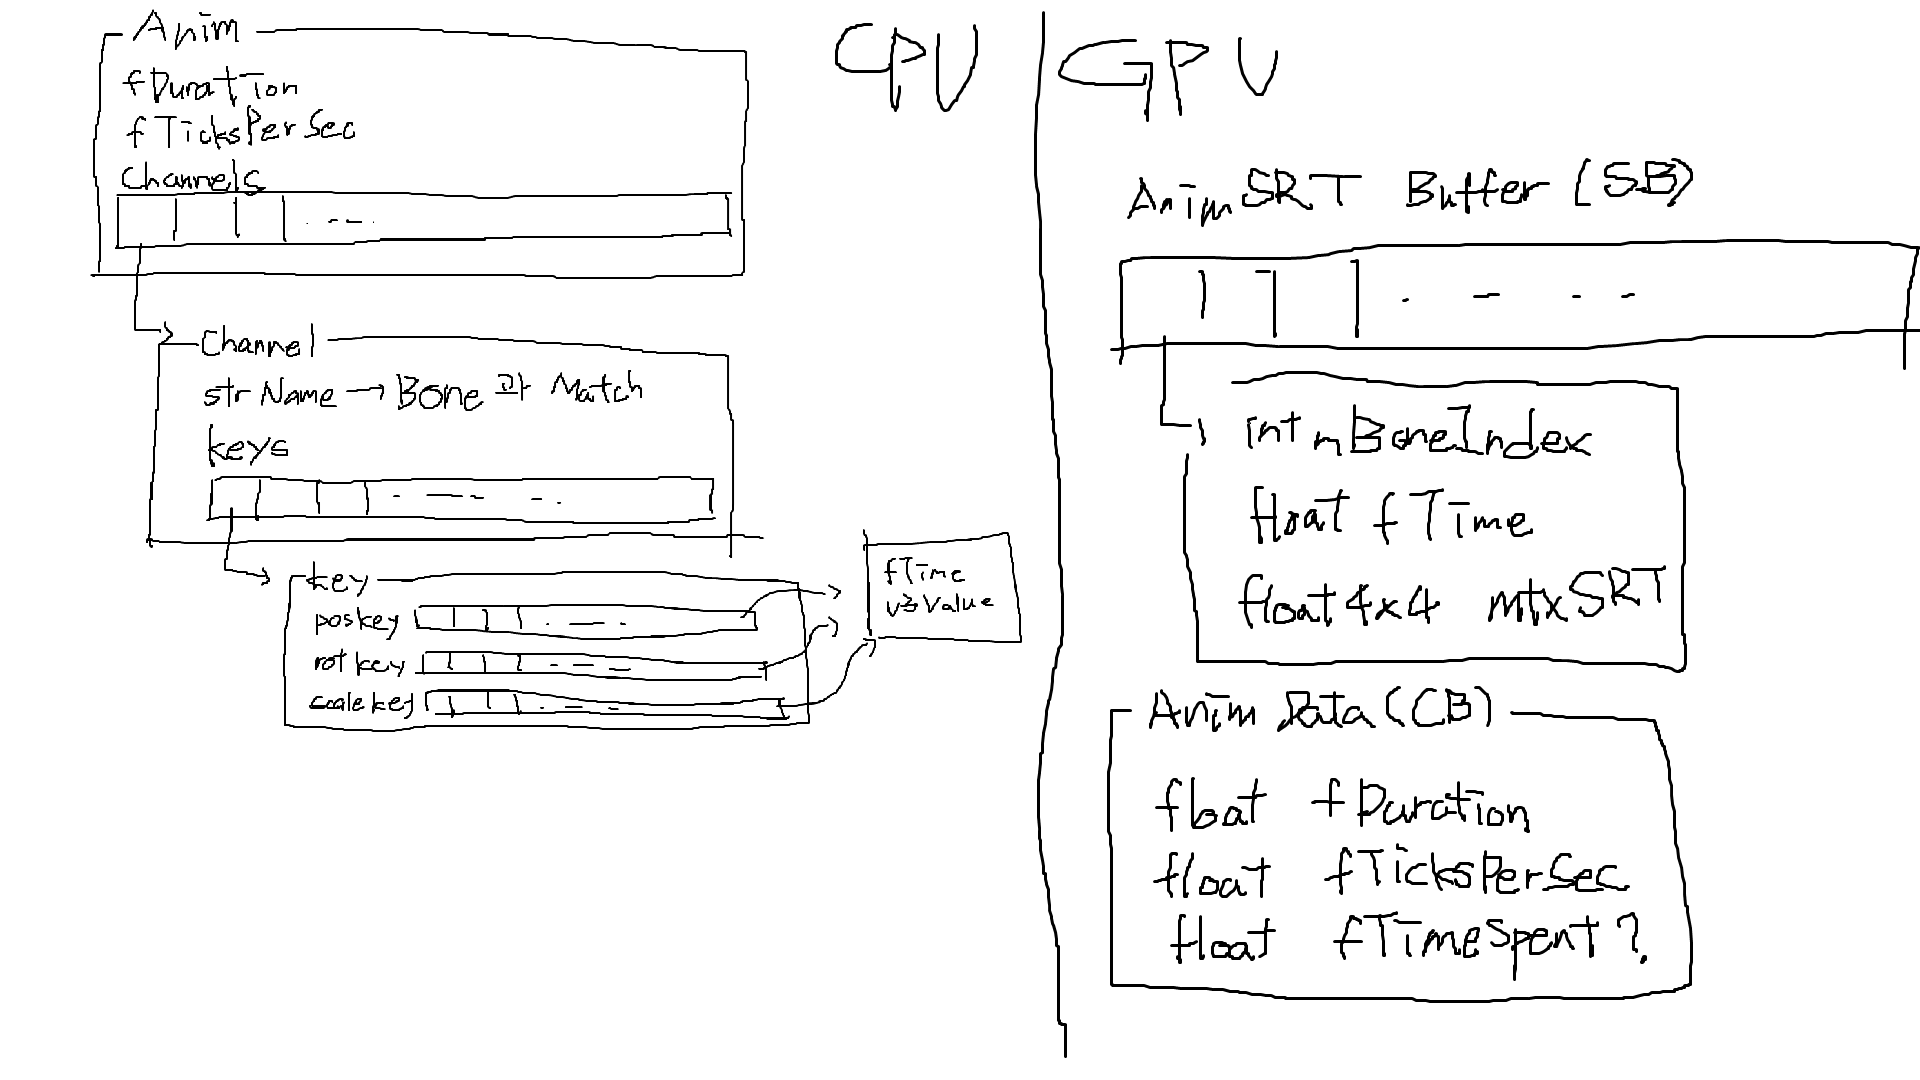 Anim
fDuratTion
fTicksPerSec
Channels
Channel
strName → Bone 과 Match
keys
key
poskey
rotkey
scalekey
fTime
v3Value
CPU
GPU
AnimSRT Buffer (SB)
int nBoneIndex
float fTime
float4x4 mtxSRT
Anim Data (CB)
float fDuration
float fTicksPerSec
float fTimeSpent?